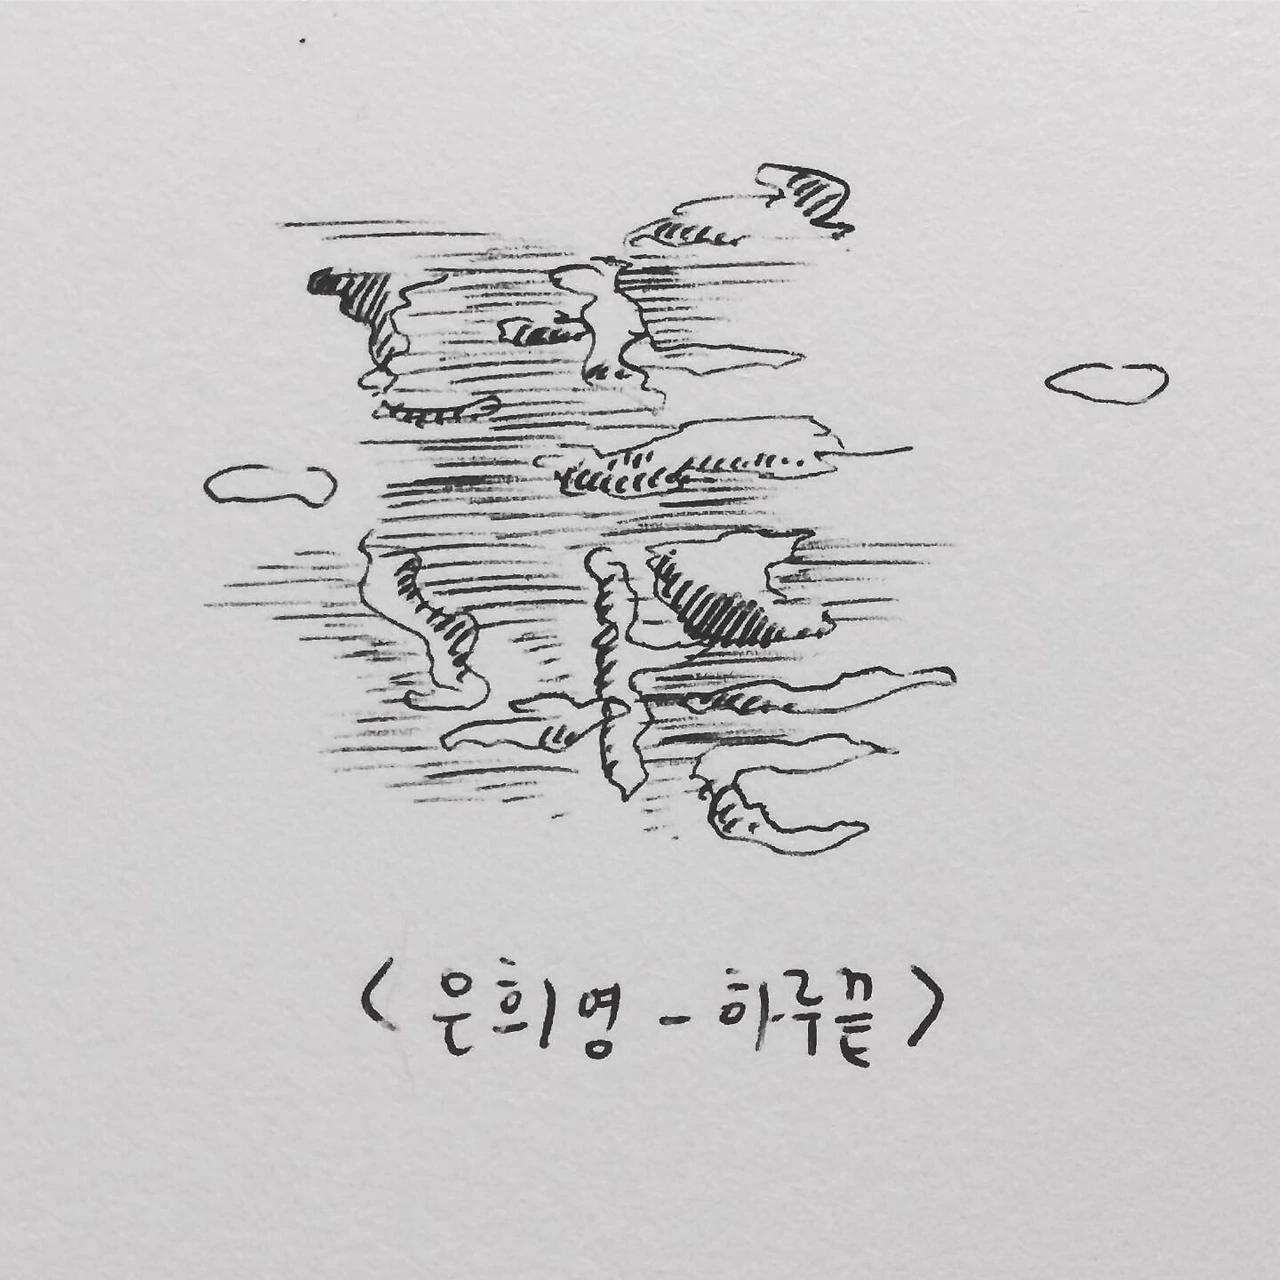 <은희영 - 하루끝>